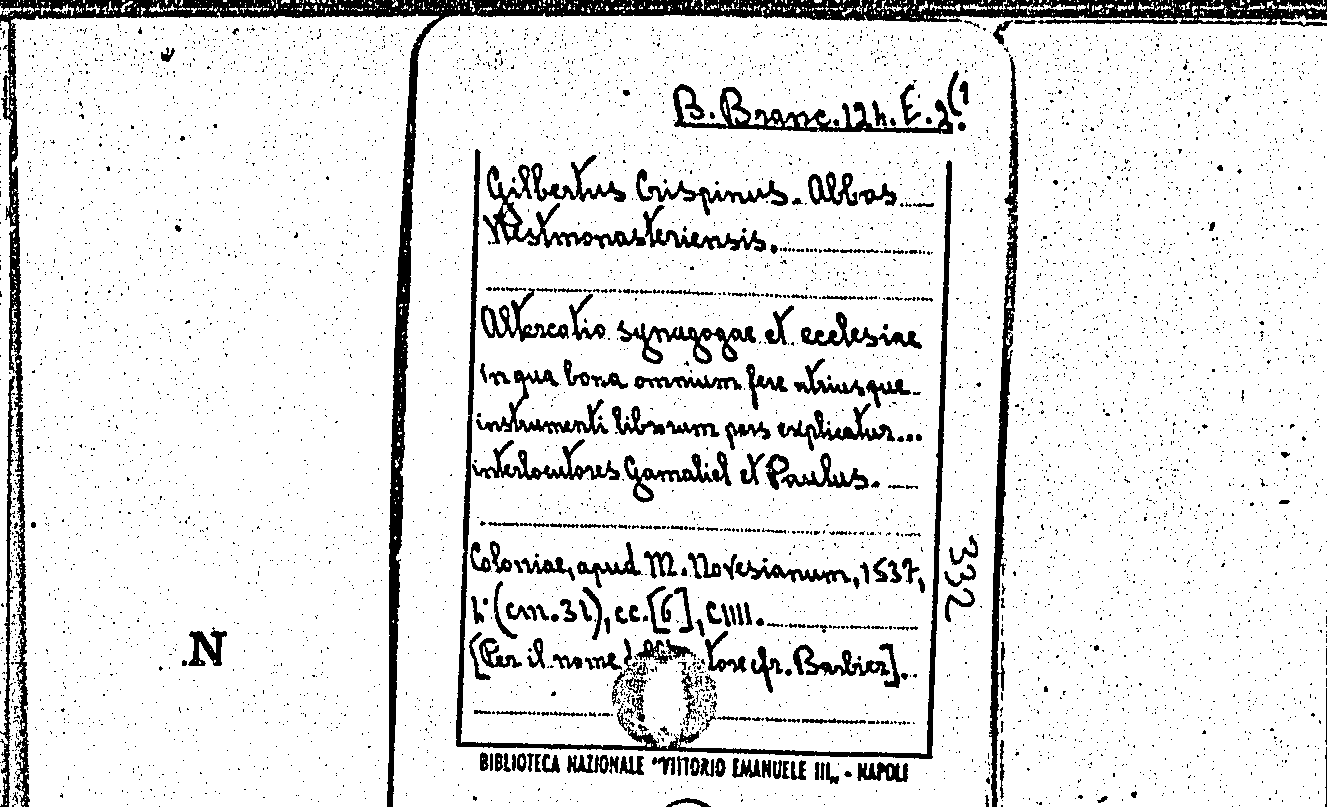 B. Branc. 124. E. 2(1
Gilbertus Crispinus. Abbas
Westmonasteriensis.
Altercatio synagogae et ecclesiae
in qua bona omnium fere utriusque
instrumenti librorum pars explicatur...
interlocutores Gamaliel et Paulus.
Coloniae, apud M. Novesianum, 1537,
4° (cm. 31), cc. [6], CIIII.
[Per il nome cfr. Barbier].
332
N
BIBLIOTECA NAZIONALE "VITTORIO EMANUELE III„ - NAPOLI